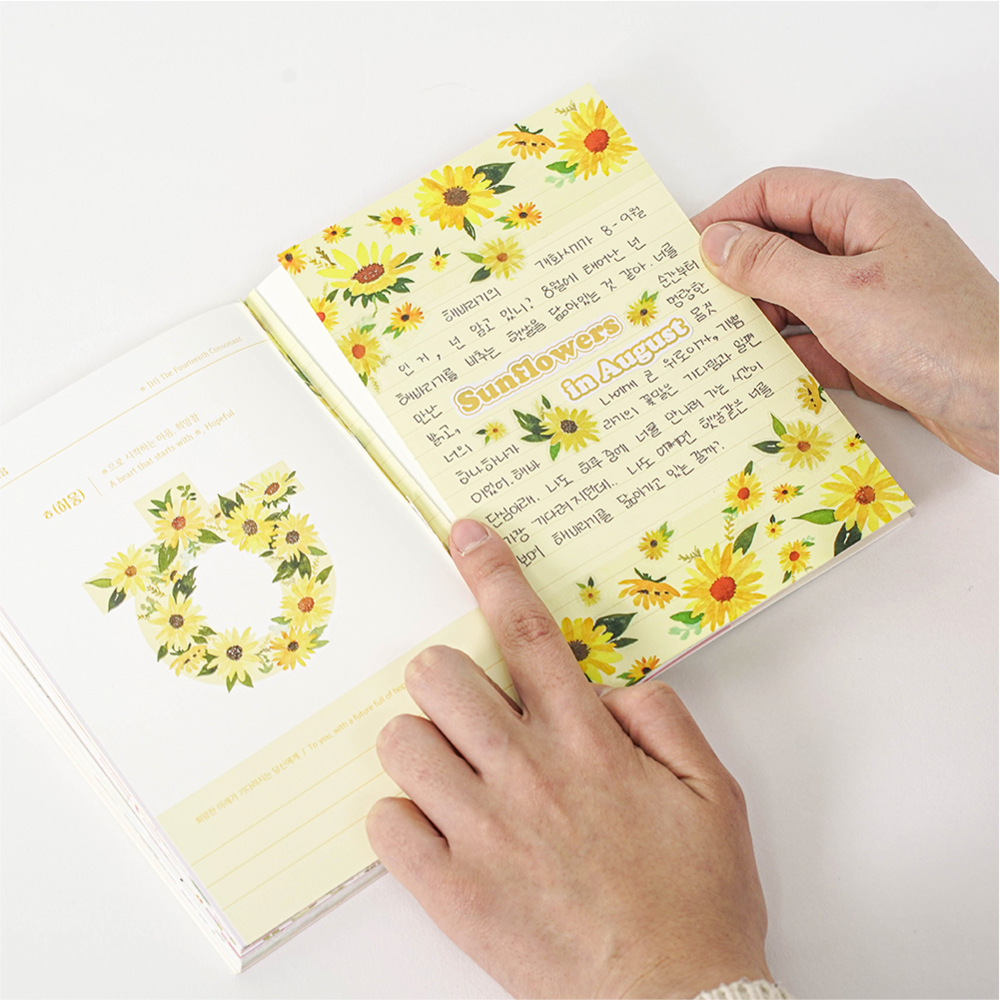 ㅎ [h] The Fourteenth Consonant
ㅎ으로 시작하는 마음, 희망참
A heart that starts with ㅎ, Hopeful
ㅎ (히읗)
희망찬 미래가 기다려지는 당신에게 / To you, with a future full of
해바라기의 개화시기가 8-9월
인 거, 넌 알고 있니? 8월에 태어난 넌
해바라기를 비추는 햇살을 닮아있는 것 같아. 너를
만난 순간부터
밝고, 명랑한
너의 몸짓
Sunflowers
in August
하나하나가 나에게 큰 위로이자, 기쁨
이었어. 해바라기의 꽃말은 기다림과 일편
단심이래. 나도 하루 중에 너를 만나러 가는 시간이
가장 기다려지던데.. 나도 어쩌면 햇살같은 너를
보며 해바라기를 닮아가고 있는 걸까?